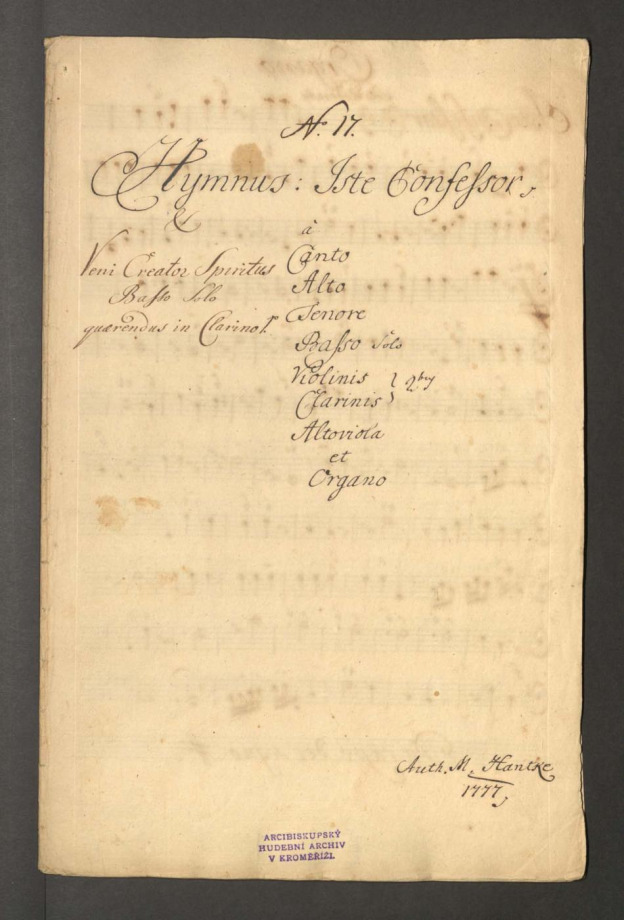 No. 17.
Hymnus: Iste Confessor,
&
à
Veni Creator Spiritus
Basso Solo
quærendus in Clarino 1mo
Canto
Alto
Tenore
Basso Solo
Violinis
Clarinis
Altoviola
et
Organo
Auth. M. Hantke
1777,
ARCIBISKUPSKÝ
HUDEBNÍ ARCHIV
V KROMĚŘÍŽI.